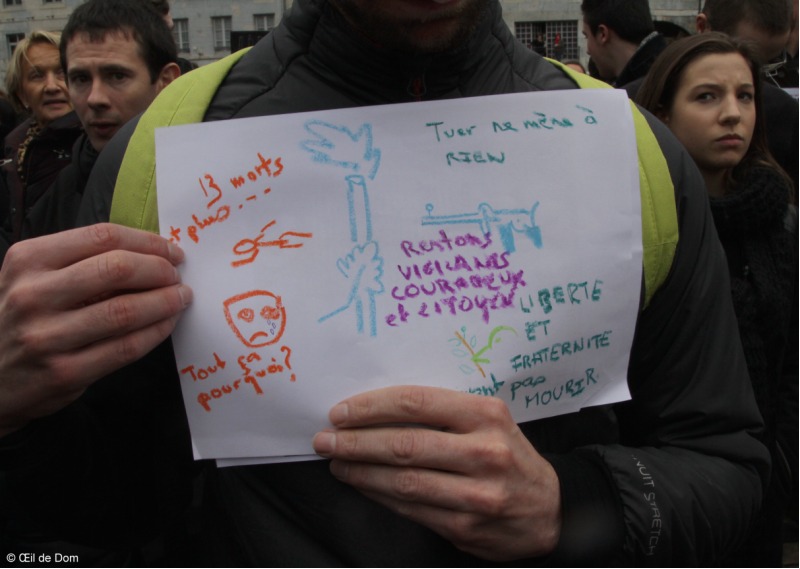 13 morts
plus...
Tout ça
pourquoi?
Tuer ne mène à
RIEN
Restons
VIGILANTS
COURAGEUX
et citoyen
LIBERTE
ET
FRATERNITE
pas
MOURIR.
NUIT STRETCH
© Œil de Dom